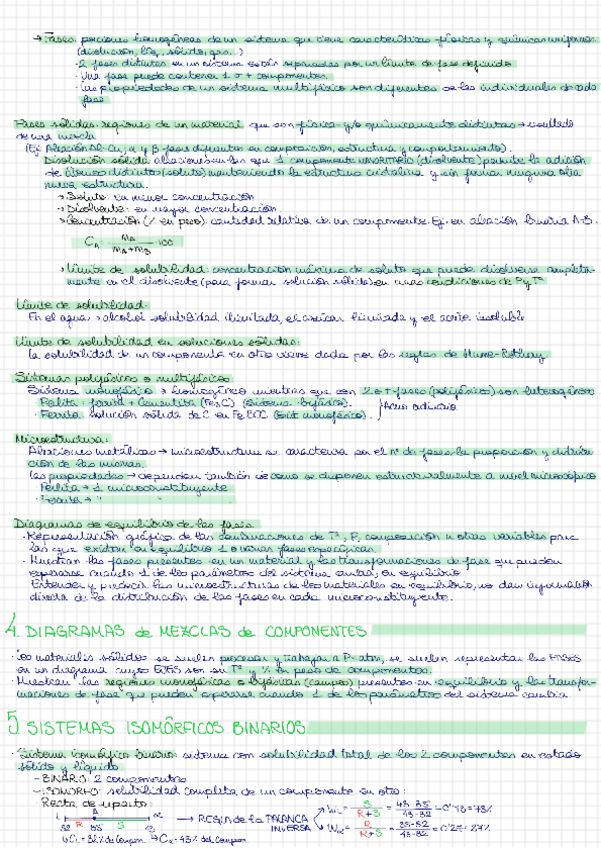 → Fases: porciones homogéneas de un sistema que tiene características físicas y químicas uniformes
(disolución, líq, sólido, gas..)
· 2 fases distintas en un sistema están separadas por un límite de fase definido
· Una fase puede contener 1 o + componentes
· Las propiedades de un sistema multifásico son diferentes de las individuales de cada
fase
Fases sólidas: regiones de un material que son física y/o químicamente distintas → resultado
de una mezcla
(Ej: Aleación Al-Cu, α y β fases diferentes en composición, estructura y comportamiento).
Disolución sólida: aleaciones en las que 1 componente MAYORITARIO (disolvente) permite la adición
de átomos distintos (soluto) manteniendo la estructura cristalina y sin formar ninguna otra
nueva estructura.
→ Soluto: en menor concentración
→ Disolvente: en mayor concentración
→ Concentración (% en peso): cantidad relativa de un componente. Ej: en aleación binaria A-B.
C_A = m_A / (m_A + m_B) · 100
→ Límite de solubilidad: concentración máxima de soluto que puede disolverse completa-
mente en el disolvente (para formar solución sólida) en unas condiciones de P y Tª
Límite de solubilidad:
En el agua → alcohol solubilidad ilimitada, el azúcar limitada y el aceite insoluble
Límite de solubilidad en soluciones sólidas:
La solubilidad de un componente en otro viene dada por las reglas de Hume-Rothery
Sistemas polifásicos o multifásicos:
Sistema monofásico → homogéneo mientras que con 2 o + fases (polifásico) son heterogéneos
· Perlita: ferrita + Cementita (Fe₃C) (sistema bifásico).
· Ferrita: solución sólida de C en Fe BCC (sist monofásico).
} Acero ordinario
Microestructura:
Aleaciones metálicas → microestructura se caracteriza por el nº de fases, la proporción y distribu-
ción de las mismas.
Las propiedades → dependen también de como se disponen estructuralmente a nivel microscópico
Perlita → 1 microconstituyente
Ferrita → " "
Diagramas de equilibrio de las fases
· Representación gráfica de las combinaciones de Tª, P, composición u otras variables para
las que existen en equilibrio 1 o varias fases específicas.
· Muestran las fases presentes en un material y las transformaciones de fase que pueden
esperarse cuando 1 de los parámetros del sistema cambia, en equilibrio
· Entender y predecir las microestructuras de los materiales en equilibrio, no dan información
directa de la distribución de las fases en cada microconstituyente.
4. DIAGRAMAS de MEZCLAS de COMPONENTES
· Los materiales sólidos se suelen procesar y trabajar a P atm, se suelen representar las FASES
en un diagrama cuyos EJES son su Tª y % en peso de componentes.
· Muestran las regiones monofásicas o bifásicas (campos) presentes en equilibrio y las transfor-
maciones de fase que pueden esperarse cuando 1 de los parámetros del sistema cambia
5. SISTEMAS ISOMÓRFICOS BINARIOS
· Sistema isomórfico binario: sistema con solubilidad total de los 2 componentes en estado
sólido y líquido
- BINARIO: 2 componentes
- ISOMORFO: solubilidad completa de un componente en otro:
Recta de reparto:
L A α
32 R 35 S 43
→ REGLA de la PALANCA INVERSA
W_L = S / (R+S) = (43-35) / (43-32) = 0'73 = 73%
W_α = R / (R+S) = (35-32) / (43-32) = 0'27 = 27%